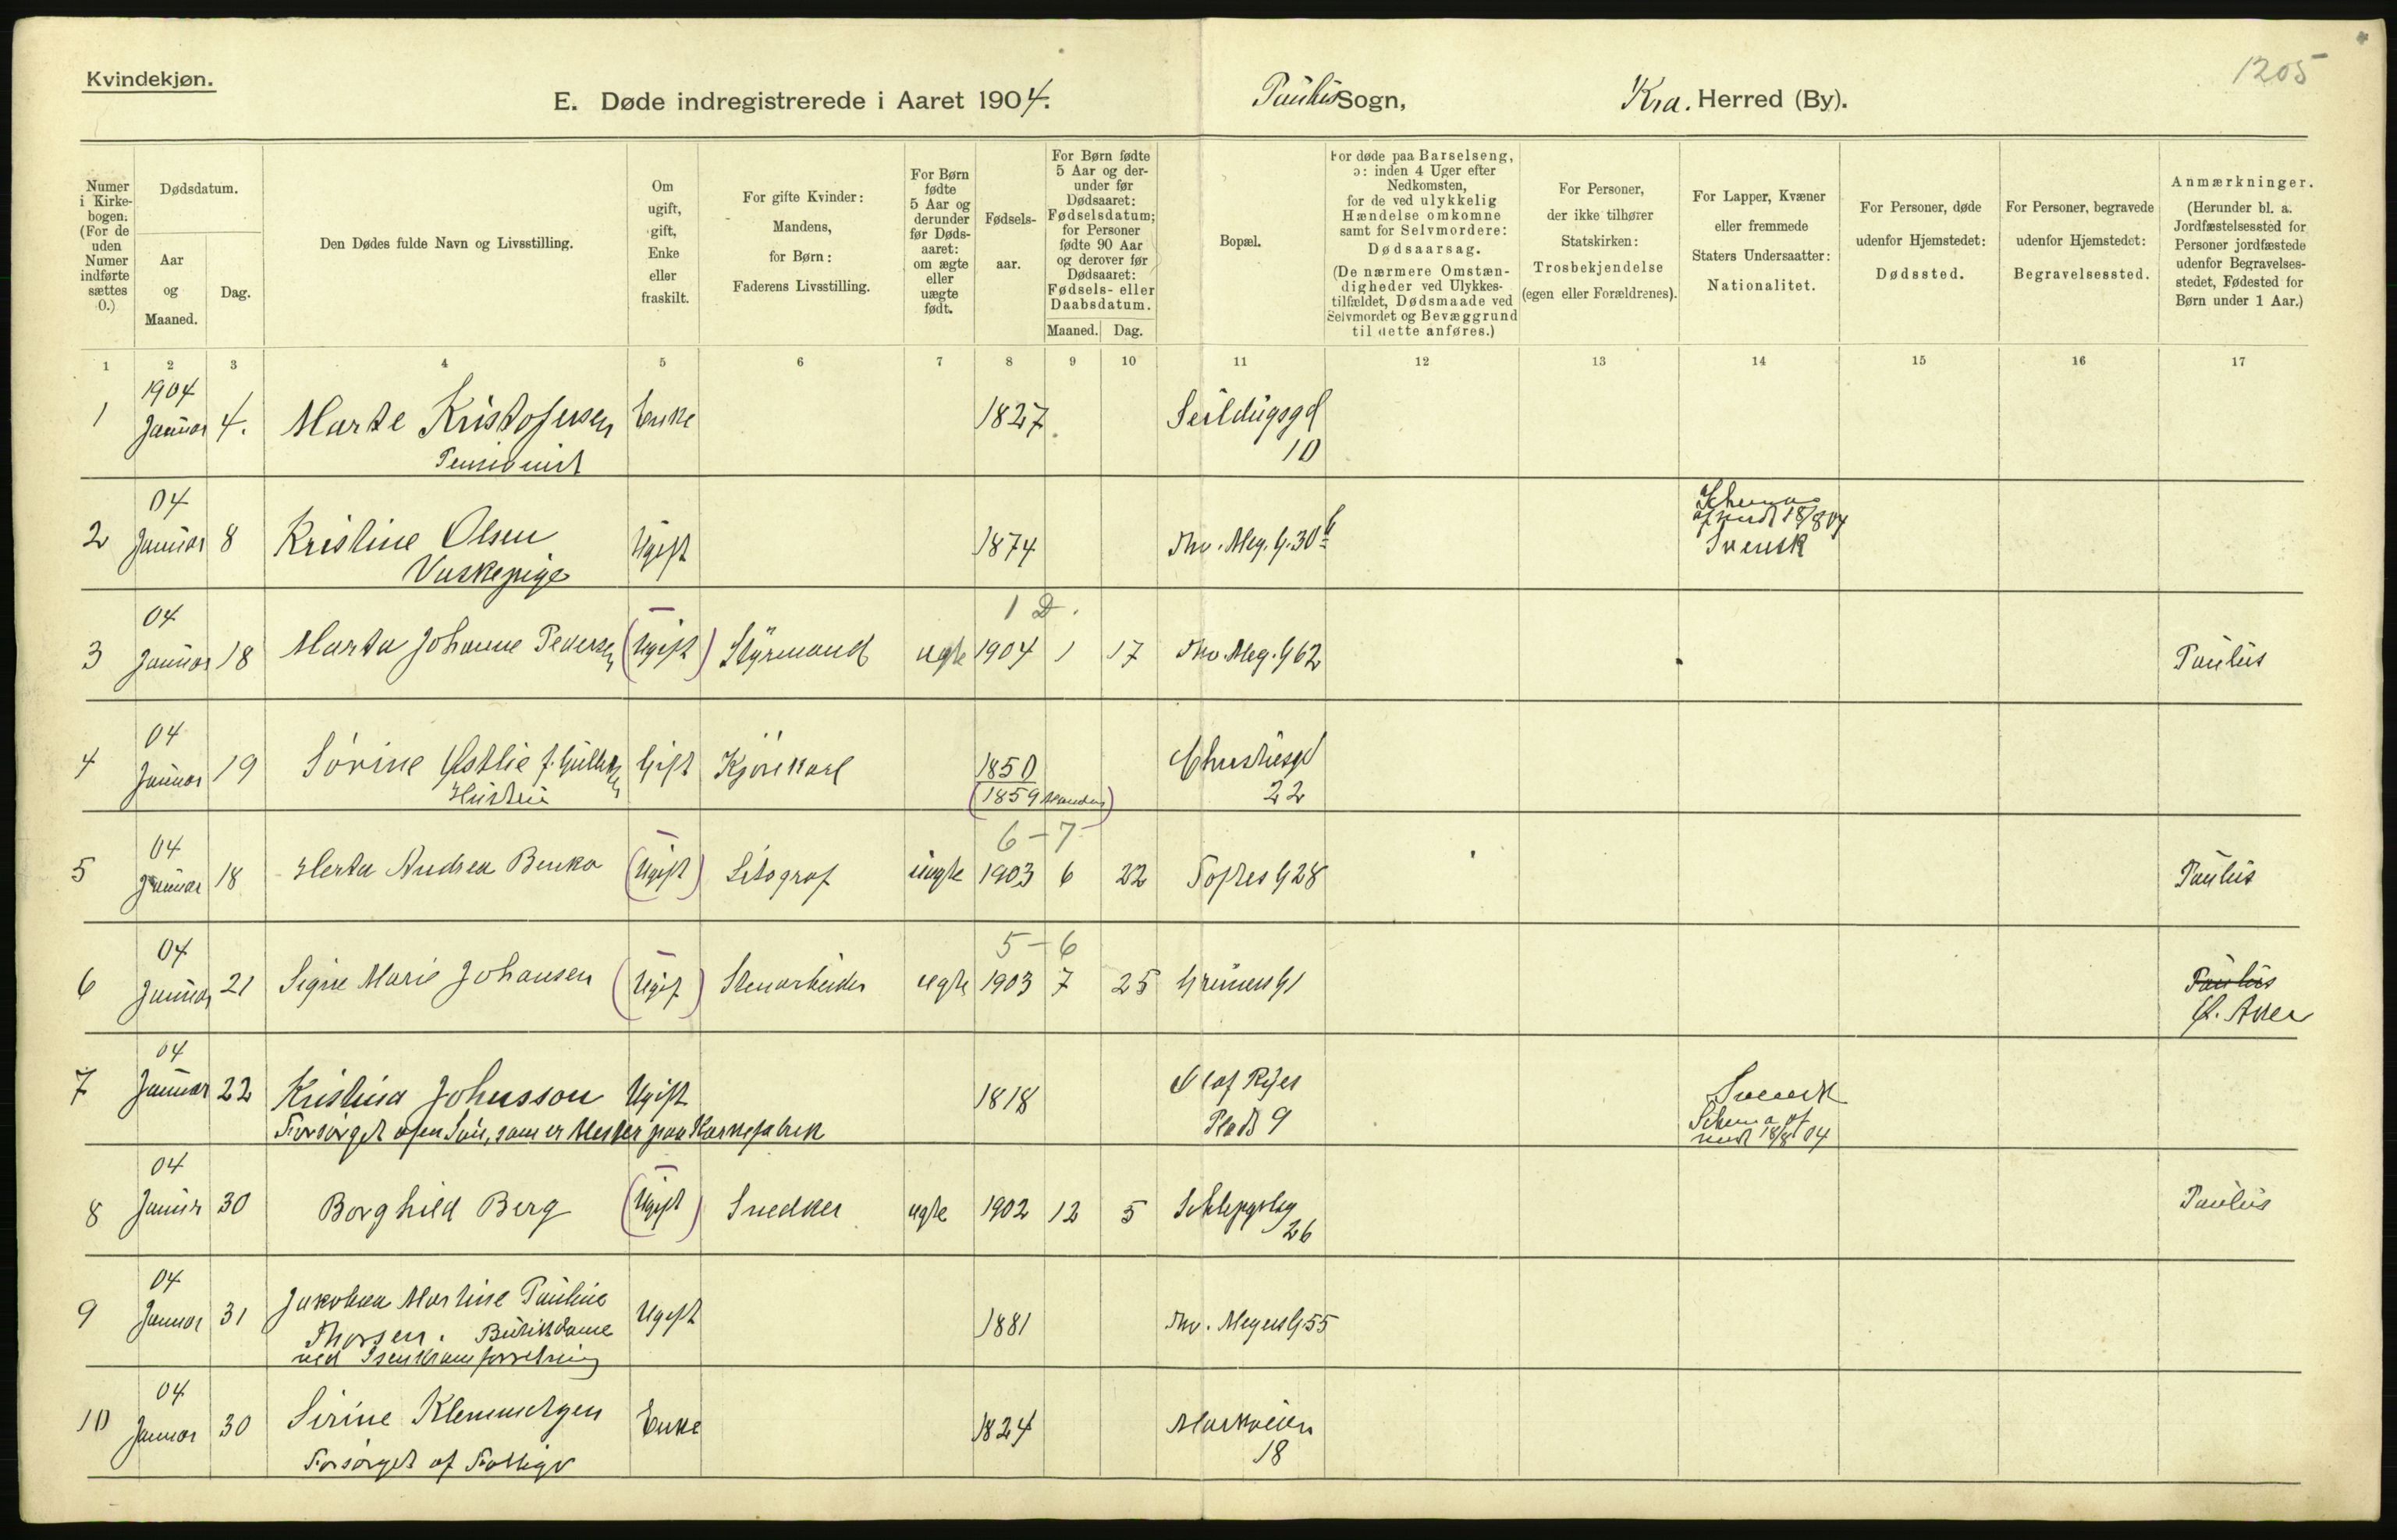 Kvindekjøn.
1205
E. Døde indregistrerede i Aaret 1904. Paulus Sogn, Kra. Herred (By).
Numer i Kirke-bogen. (For de uden Numer indførte sættes 0.)
Dødsdatum.
Aar og Maaned.
Dag.
Den Dødes fulde Navn og Livsstilling.
Om ugift, gift, Enke eller fraskilt.
For gifte Kvinder: Mandens, for Børn: Faderens Livsstilling.
For Børn fødte 5 Aar og derunder før Døds-aaret: om ægte eller uægte født.
Fødsels-aar.
For Børn fødte 5 Aar og der-under før Dødsaaret: Fødselsdatum; for Personer fødte 90 Aar og derover før Dødsaaret: Fødsels- eller Daabsdatum.
Maaned. Dag.
Bopæl.
For døde paa Barselseng, ɔ: inden 4 Uger efter Nedkomsten, for de ved ulykkelig Hændelse omkomne samt for Selvmordere: Dødsaarsag. (De nærmere Omstæn-digheder ved Ulykkes-tilfældet, Dødsmaade ved Selvmordet og Bevæggrund til dette anføres.)
For Personer, der ikke tilhører Statskirken: Trosbekjendelse (egen eller Forældrenes).
For Lapper, Kvæner eller fremmede Staters Undersaatter: Nationalitet.
For Personer, døde udenfor Hjemstedet: Dødssted.
For Personer, begravede udenfor Hjemstedet: Begravelsessted.
Anmærkninger. (Herunder bl. a. Jordfæstelsessted for Personer jordfæstede udenfor Begravelses-stedet, Fødested for Børn under 1 Aar.)
1 2 3 4 5 6 7 8 9 10 11 12 13 14 15 16 17
1904
1 Januar 4. Marte Kristofersen Enke 1827 Seildugsgd
Pensionist 10
04 Schema
afsendt 18/8 04
2 Januar 8 Kristine Olsen Ugift 1874 Thv. Mey. G. 30 b Svensk
Vaskepige
04 1 D.
3 Januar 18 Marta Johanne Pedersen (Ugift) Styrmand ægte 1904 1 17 Thv. Mey. G 62 Paulus
04
4 Januar 19 Sørine Østlie f. Gulliksen Gift Kjørekarl 1850
Hustru (1859 Manden) 22
04 6-7
5 Januar 18 Herta Andrea Benko (Ugift) Litograf uægte 1903 6 22 Toftes G 28 Paulus
04 5-6
6 Januar 21 Signe Marie Johansen (Ugif) Stenarbeider ægte 1903 7 25 Grüners G 1 Paulus
Ø. Aker
04
7 Januar 22 Kristina Johnsson Ugift 1818 Olaf Ryes Svensk
Forsørget af en Søn, som er Mester paa Korkefabrik Plads 9 Schema af
sendt 18/8 04
04
8 Januar 30 Borghild Berg (Ugift) Snedker ægte 1902 12 5 Schleppegr.
26 Paulus
04
9 Januar 31 Jakobaa Martine Pauline Ugift 1881 Thv. Meyers G 55
Thorsen. Butikdame
ved Isenkramforretning
04
10 Januar 30 Sirine Klemmetsen Enke 1824 Markveien
Forsørget af Fattigv 18